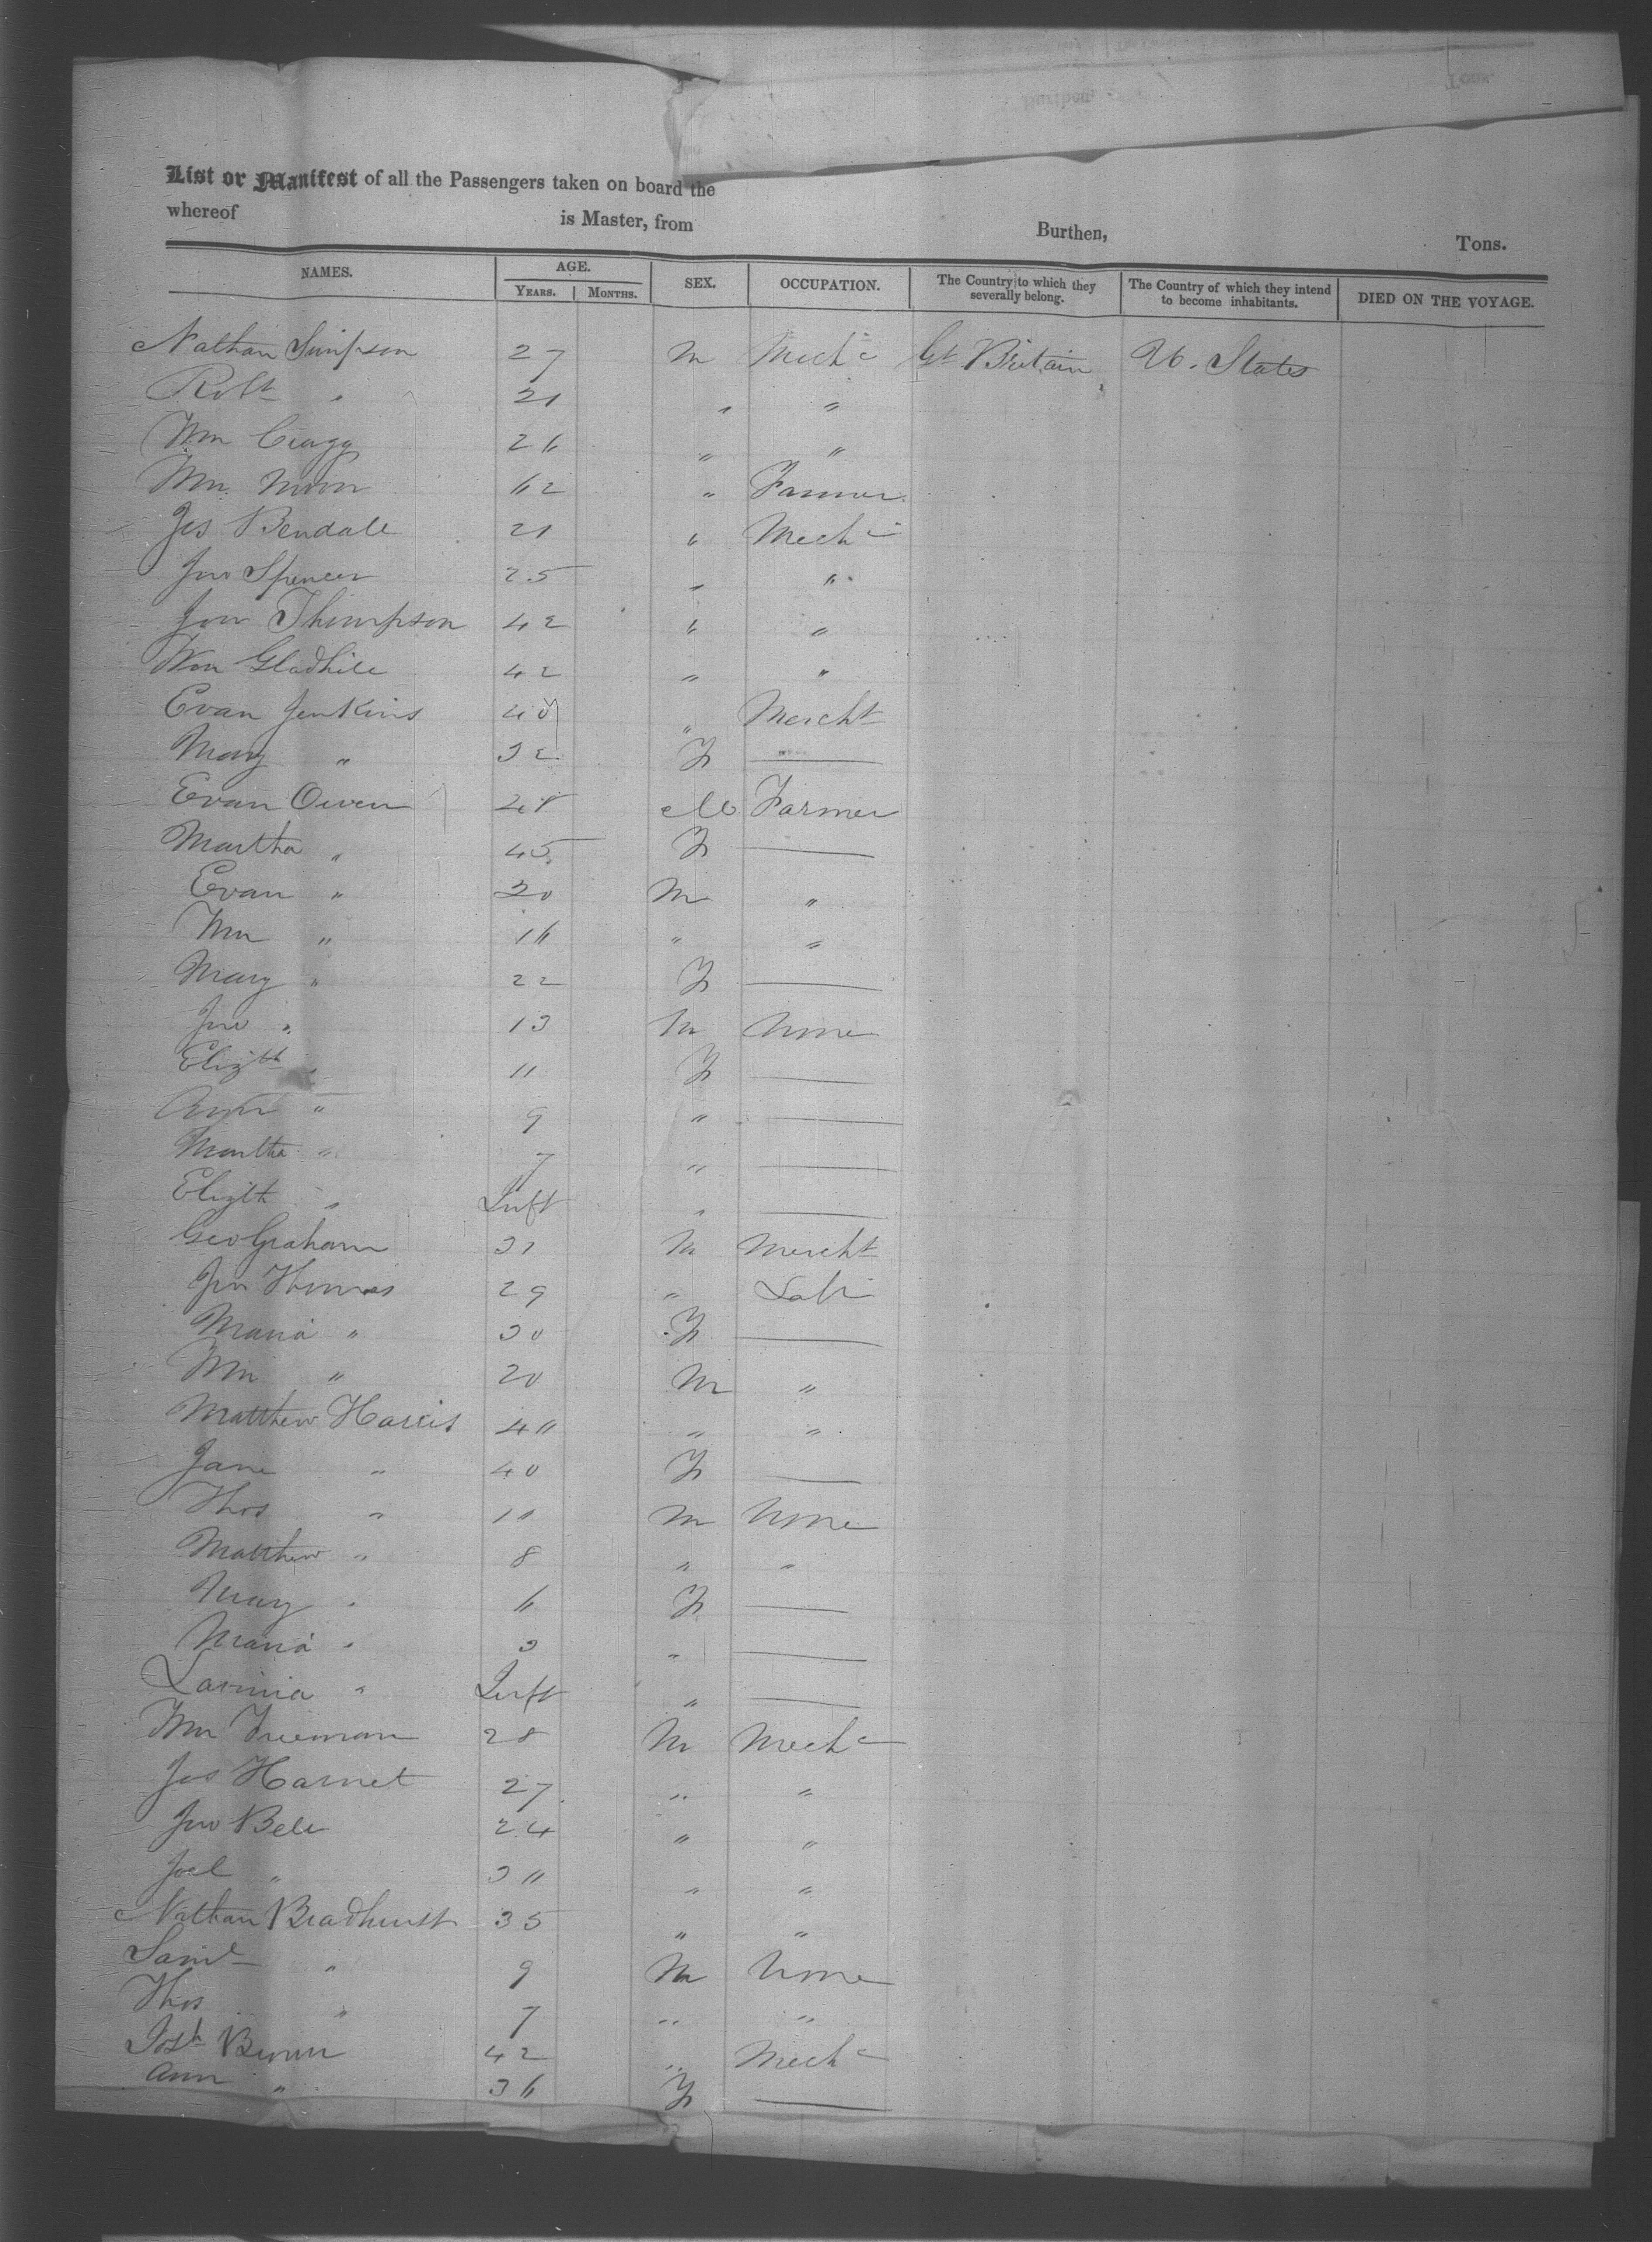 List or Manifest of all the Passengers taken on board the
whereof is Master, from Burthen, Tons.
NAMES. AGE. YEARS. MONTHS. SEX. OCCUPATION. The Country to which they severally belong. The Country of which they intend to become inhabitants. DIED ON THE VOYAGE.
Nathan Simpson 27 M Mechc Gt Britain U. States
Robt " 21 " "
Wm Cragg 26 " "
Wm 62 " Farmer
Jos Bendale 21 " Mechc
Jno Spencer 25 " "
Jon Thompson 42 " "
Wm Gladhill 42 " "
Evan Jenkins 40 " Mercht
Mary " 32 F —
Evan Owen 48 M Farmer
Martha " 45 F —
Evan " 20 M "
Wm " 16 " "
Mary " 22 F —
Jno " 13 M None
Elizth " 11 F —
Ann " 9 " —
Martha " 7 " —
Elizth " Inft " —
Geo Graham 31 M Mercht
Jno Thomas 29 " Labr
Maria " 30 F —
Wm " 20 M "
Matthew Harris " "
Jane " 40 F —
Thos " M None
Matthew " 8 " "
Mary " 6 F —
Maria " 3 " —
Lavinia " Inft " —
Wm Freeman 28 M Mechc
Jos Harnet 27 " "
Jno Bell 24 " "
Joel " " "
Nathan Bradhurst 35 " "
Saml " 9 M None
Thos " 7 " "
Josh 42 " Mechc
Ann " 36 F —